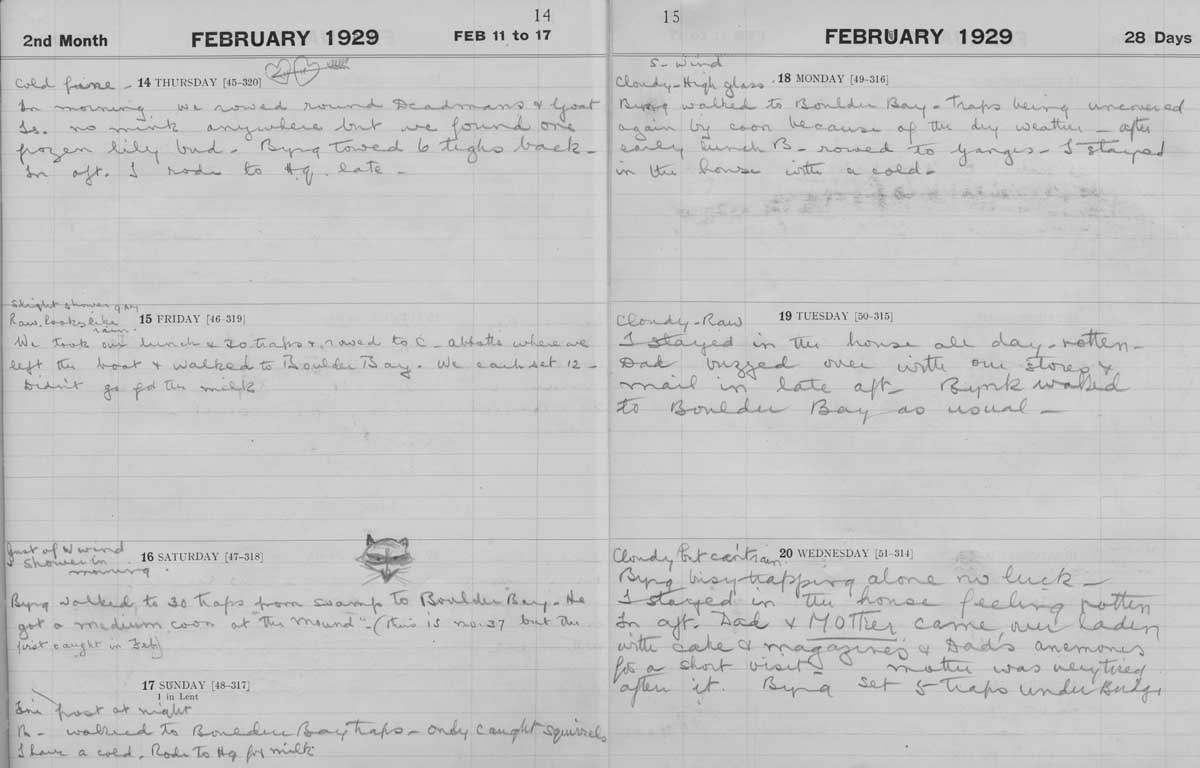 14
2nd Month FEBRUARY 1929 FEB 11 to 17
Cold fine - 14 THURSDAY [45-320]
In morning we rowed round Deadmans & Goat
Is. no mink anywhere but we found one
frozen lily bud. Byrg towed 6 back -
In aft. I rode to Hq. late -
Slight shower
Raw. looks like
rain.
15 FRIDAY [46-319]
We took our lunch & 20 traps & rowed to C - abbotts where we
left the boat & walked to Boulder Bay. We each set 12 -
Didn't go for the milk
of N wind
& shower in
morning.
16 SATURDAY [47-318]
Byrg walked to 30 traps from swamp to Boulder Bay. He
got a medium coon at the "mound" - (this is no. 37 but the
first caught in Feb)
17 SUNDAY [48-317]
1 in Lent
frost at night
B - walked to Boulder Bay traps - only caught squirrels
I have a cold. Rode to Hq for milk
15
FEBRUARY 1929 28 Days
S - wind
Cloudy - High glass. 18 MONDAY [49-316]
Byrg walked to Boulder Bay - traps being uncovered
again by coon because of the dry weather - after
early lunch B - rowed to Ganges - I stayed
in the house with a cold -
Cloudy - Raw 19 TUESDAY [50-315]
I stayed in the house all day - rotten -
Dad buzzed over with our stores &
mail in late aft - walked
to Boulder Bay as usual -
Cloudy but can't rain. 20 WEDNESDAY [51-314]
Byrg busy trapping alone no luck -
I stayed in the house feeling rotten
In aft. Dad & MOTHER came over laden
with cake & magazines & Dad's anemones
for a short visit - mother was very tired
after it. Byrg set 5 traps under